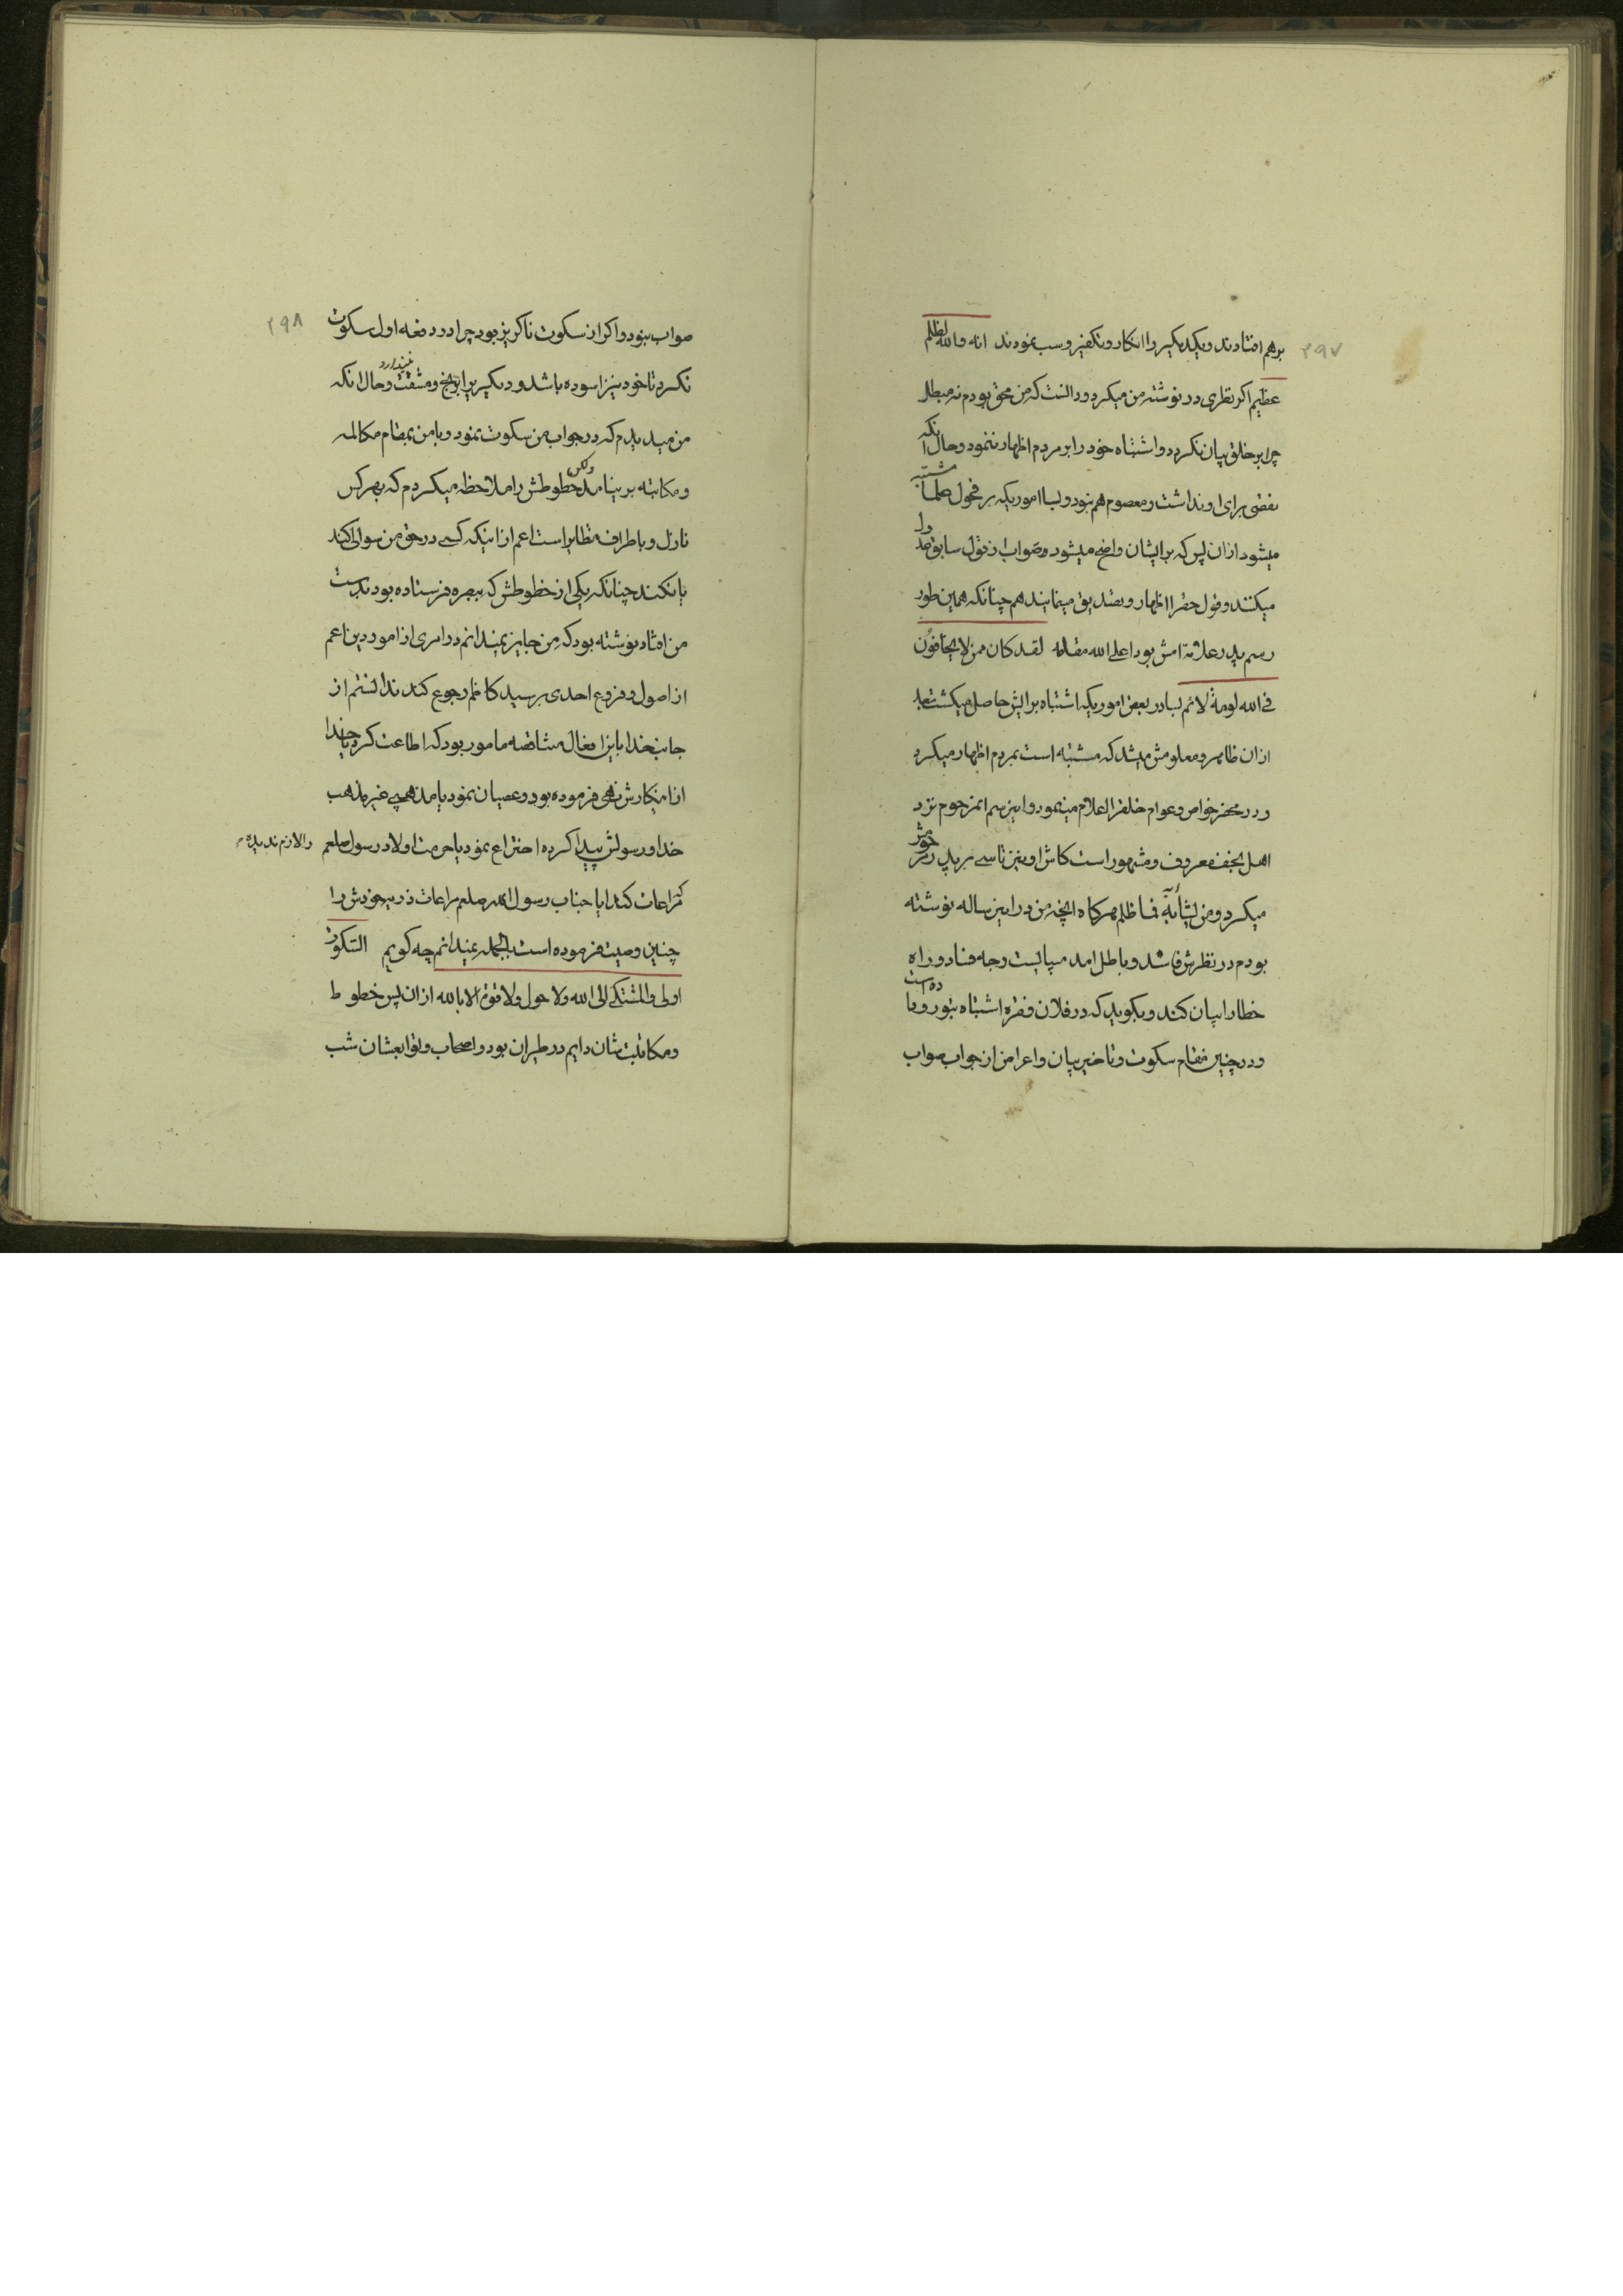 ۲۹۷
برهم افتادند و یکدیگر را انکار و تکفیر و سب نمودند انه والله لظلم
عظیم اکر نظری در نوشته من میکرد و دانست که من محق بودم نه مبطل
چرا بر خلق بیان نکرد و اشتباه خود را بر مردم اظهار ننمود و حال انکه
نقصی برای او نداشت و معصوم هم نبود و بسا اموریکه بر فحول علما مشتبه
میشود ازان پس که بر ایشان واضح میشود و صواب از قول سابق عدول
میکنند و قول حق را اظهار و تصدیق مینمایند هم چنانکه همین طور
رسم پدر علامه امش بود اعلی الله مقامه لقد کان ممن لا یخافون
فی الله لومة لائم بسا در بعض اموریکه اشتباه برایش حاصل میکشت بعد
ازان ظاهر و معلومش میشد که مشتبه است بمردم اظهار میکرد
و در محضر خواص و عوام خلقرا اعلام مینمود و این رسم انمرحوم نزد
اهل نجف معروف و مشهور است کاش او نیز تاسی بر پدر خودش
میکرد و من یشابه فما ظلم هرکاه انچه من در این رساله نوشته
بودم در نظرش فاسد و باطل امد میبایست وجه فساد و راه
خطا را بیان کند و بکوید که در فلان فقره اشتباه نبوده است
و در چنین مقام سکوت و تاخیر بیان و اعراض از جواب صواب
۲۹۸
صواب نبود و اکر از سکوت ناکریز بود چرا در دفعه اول سکوت
نکرد تا خود نیز اسوده باشد و دیکری را برنج و مشقت نیندازد و حال انکه
من میدیدم که در جواب من سکوت نمود و با من بمقام مکالمه
و مکاتبه بر نیامد ولکن خطوطش را ملاحظه میکردم که بهر کس
نازل و باطراف متطایر است اعم از اینکه کسی در حق من سوالی کند
یا نکند چنانکه یکی از خطوطش که ببصره فرستاده بود بدست
من افتاد نوشته بود که من جایز نمیدانم در امری از امور دین اعم
از اصول و فروع احدی بر سید کاظم رجوع کند ندانستم از
جانب خدا باین افعال متناقضه مامور بود که اطاعت کرد یا خدا
از اینکارش نهی فرموده بود و عصیان نمود یا مذهبی غیر مذهب
خدا و رسولش پیدا کرده اختراع نمود یا حرمت اولاد رسول صلعم را لازم ندیده
که مراعات کند ایا جناب رسول الله صلعم مراعات ذریه خودش را
چنین وصیت فرموده است بالجمله نمیدانم چه کویم السکوت
اولی و المشتکی الی الله و لا حول و لا قوة الا بالله ازان پس خطوط
و مکاتبت شان دایم در طیران بود و اصحاب و توابعشان شب